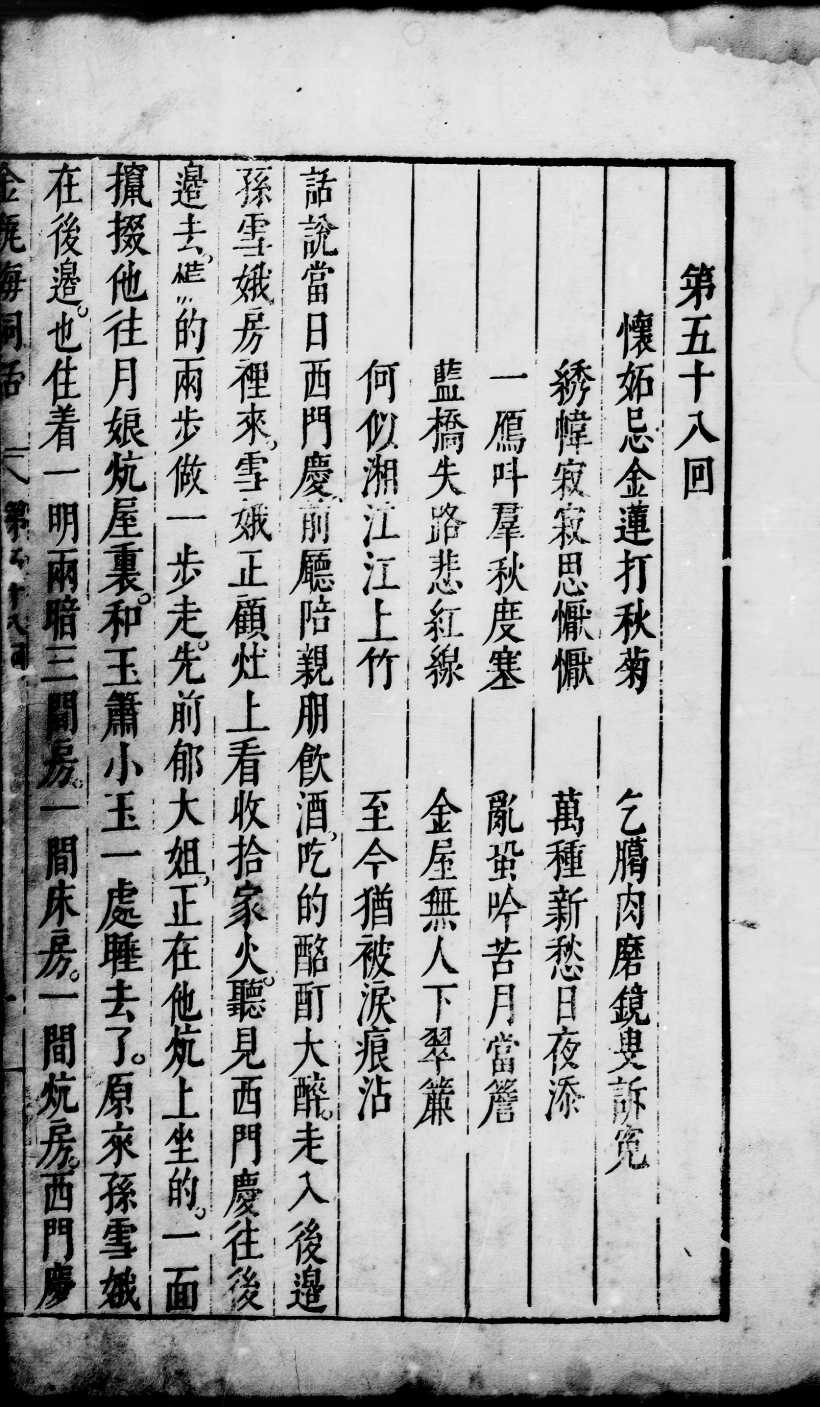 第五十八回
懷妬忌金蓮打秋菊　乞臈肉磨鏡叟訴寃
綉幃寂寂思懨懨　萬種新愁日夜添
一鴈呌羣秋度塞　亂蛩吟苦月當簷
藍橋失路悲紅線　金屋無人下翠簾
何似湘江江上竹　至今猶被淚痕沾
話說當日西門慶前廳陪親朋飲酒吃的酩酊大醉。走入後邉
孫雪娥房裡來雪娥正顧灶上看收拾家火。聽見西門慶徃後
邉去慌〻的兩步做一步走。先前郁大姐正在他炕上坐的。一面
攛掇他徃月娘炕屋裏。和玉簫小玉一處睡去了。原來孫雪娥
在後邉。也住着一明兩暗三間房。一間床房。一間炕房。西門慶
金瓶梅詞話　第五十八回　一